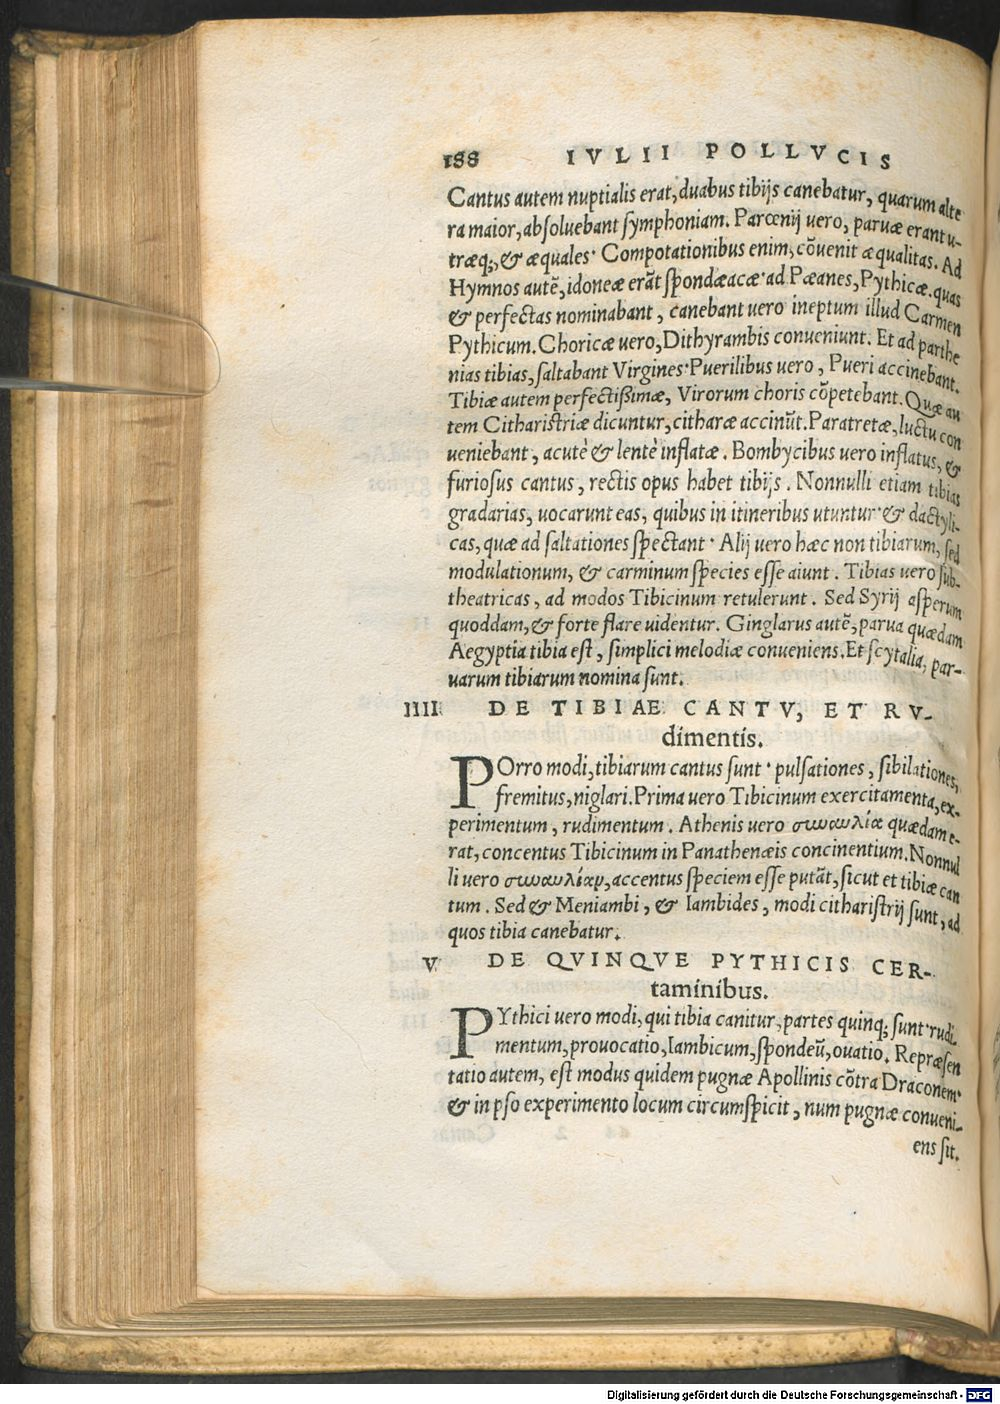 188 IVLII POLLVCIS
Cantus autem nuptialis erat, duabus tibijs canebatur, quarum alte
ra maior, absoluebant symphoniam. Parœnij uero, paruæ erant u-
træq;, & æquales· Compotationibus enim, cõuenit æqualitas. Ad
Hymnos autẽ, idoneæ erãt spondæacæ· ad Pæanes, Pythicæ· quas
& perfectas nominabant, canebant uero ineptum illud Carmen
Pythicum. Choricæ uero, Dithyrambis conueniunt. Et ad parthe
nias tibias, saltabant Virgines· Puerilibus uero, Pueri accinebant.
Tibiæ autem perfectißimæ, Virorum choris cõpetebant. Quæ au
tem Citharistriæ dicuntur, citharæ accinũt. Paratretæ, luctu con
ueniebant, acutè & lentè inflatæ. Bombycibus uero inflatus, &
furiosus cantus, rectis opus habet tibijs. Nonnulli etiam tibias
gradarias, uocarunt eas, quibus in itineribus utuntur· & dactyli-
cas, quæ ad saltationes spectant· Alij uero hæc non tibiarum, sed
modulationum, & carminum species esse aiunt. Tibias uero sub-
theatricas, ad modos Tibicinum retulerunt. Sed Syrij asperum
quoddam, & forte flare uidentur. Ginglarus autẽ, parua quædam
Aegyptia tibia est, simplici melodiæ conueniens. Et scytalia, par-
uarum tibiarum nomina sunt.
IIII. DE TIBIAE CANTV, ET RV-
dimentis.
POrro modi, tibiarum cantus sunt· pulsationes, sibilationes,
fremitus, niglari. Prima uero Tibicinum exercitamenta, ex-
perimentum, rudimentum. Athenis uero συναυλία quædam e-
rat, concentus Tibicinum in Panathenæis concinentium. Nonnul
li uero συναυλίαν, accentus speciem esse putãt, sicut et tibiæ can
tum. Sed & Meniambi, & Iambides, modi citharistrij sunt, ad
quos tibia canebatur.
V. DE QVINQVE PYTHICIS CER-
taminibus.
PYthici uero modi, qui tibia canitur, partes quinq; sunt· rudi
mentum, prouocatio, Iambicum, spondeũ, ouatio. Repræsen
tatio autem, est modus quidem pugnæ Apollinis cõtra Draconem·
& in pso experimento locum circumspicit, num pugnæ conueni-
ens sit.
Digitalisierung gefördert durch die Deutsche Forschungsgemeinschaft - DFG